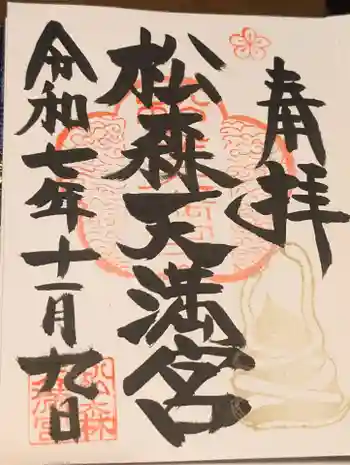 奉拝
松森天満宮
令和七年十一月九日
松森
天満宮